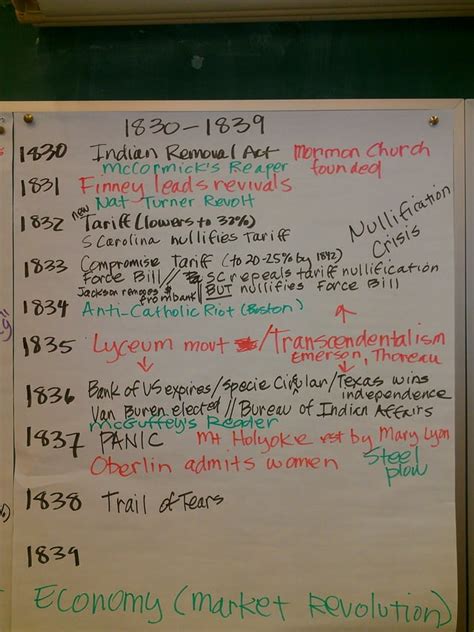 1830-1839
1830 Indian Removal Act Mormon Church
McCormick's Reaper founded
1831 Finney leads revivals
Nat Turner Revolt
new
1832 Tariff (lowers to 33%)
S Carolina nullifies tariff
Nullification
Crisis
1833 Compromise Tariff (to 20-25% by 1842)
Force Bill // SC repeals tariff nullification
Jackson removes $ from bank BUT nullifies Force Bill
1834 Anti-Catholic Riot (Boston)
1835 Lyceum movt /Transcendentalism
Emerson, Thoreau
1836 Bank of US expires/Specie Circular/Texas wins
independence
Van Buren elected // Bureau of Indian Affairs
McGuffey's Reader
1837 PANIC Mt Holyoke est by Mary Lyon
Oberlin admits women Steel
plow
1838 Trail of Tears
1839
Economy (market Revolution)